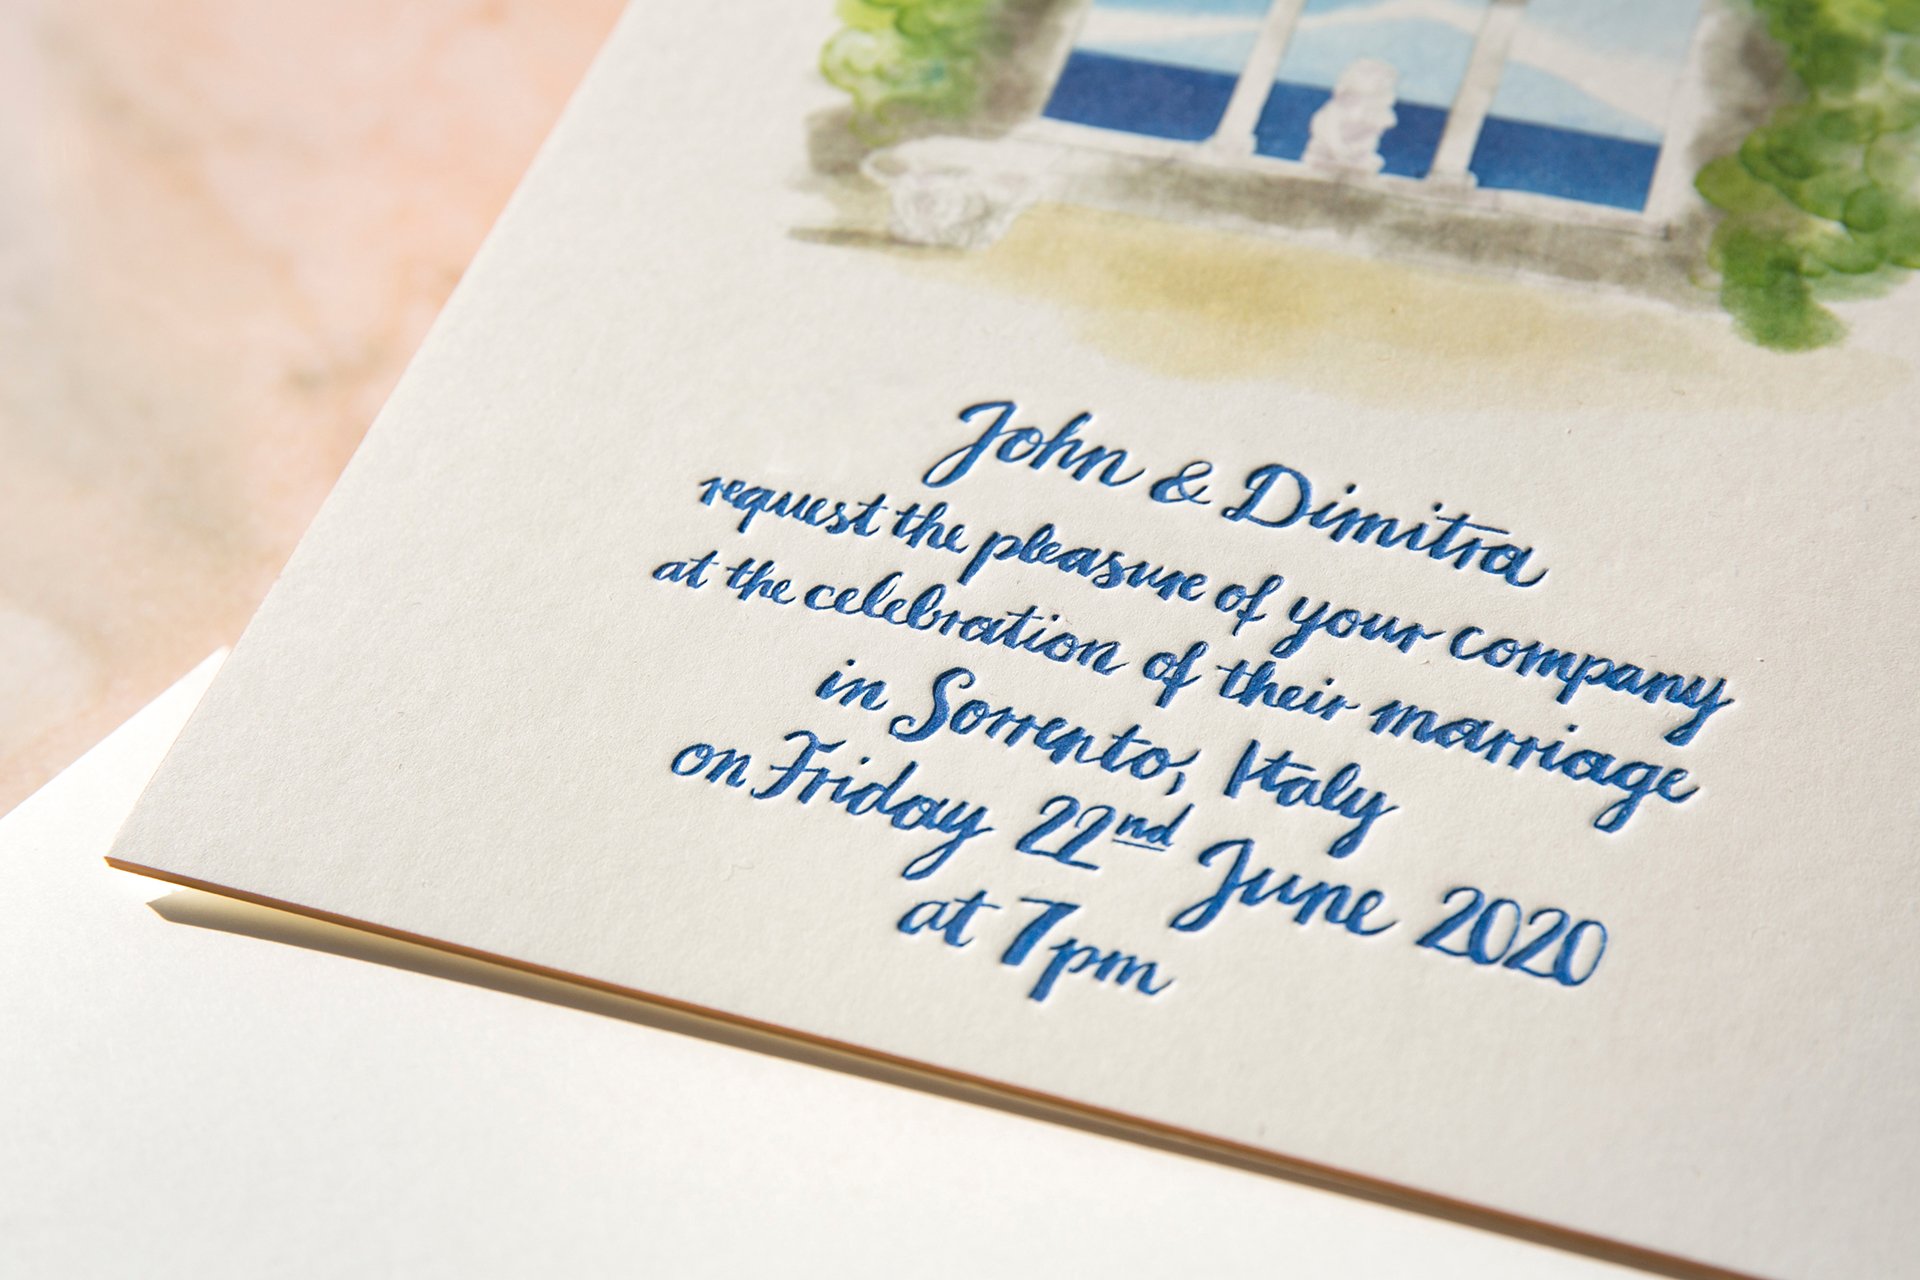 John & Dimitra
request the pleasure of your company
at the celebration of their marriage
in Sorrento, Italy
on Friday 22nd June 2020
at 7pm